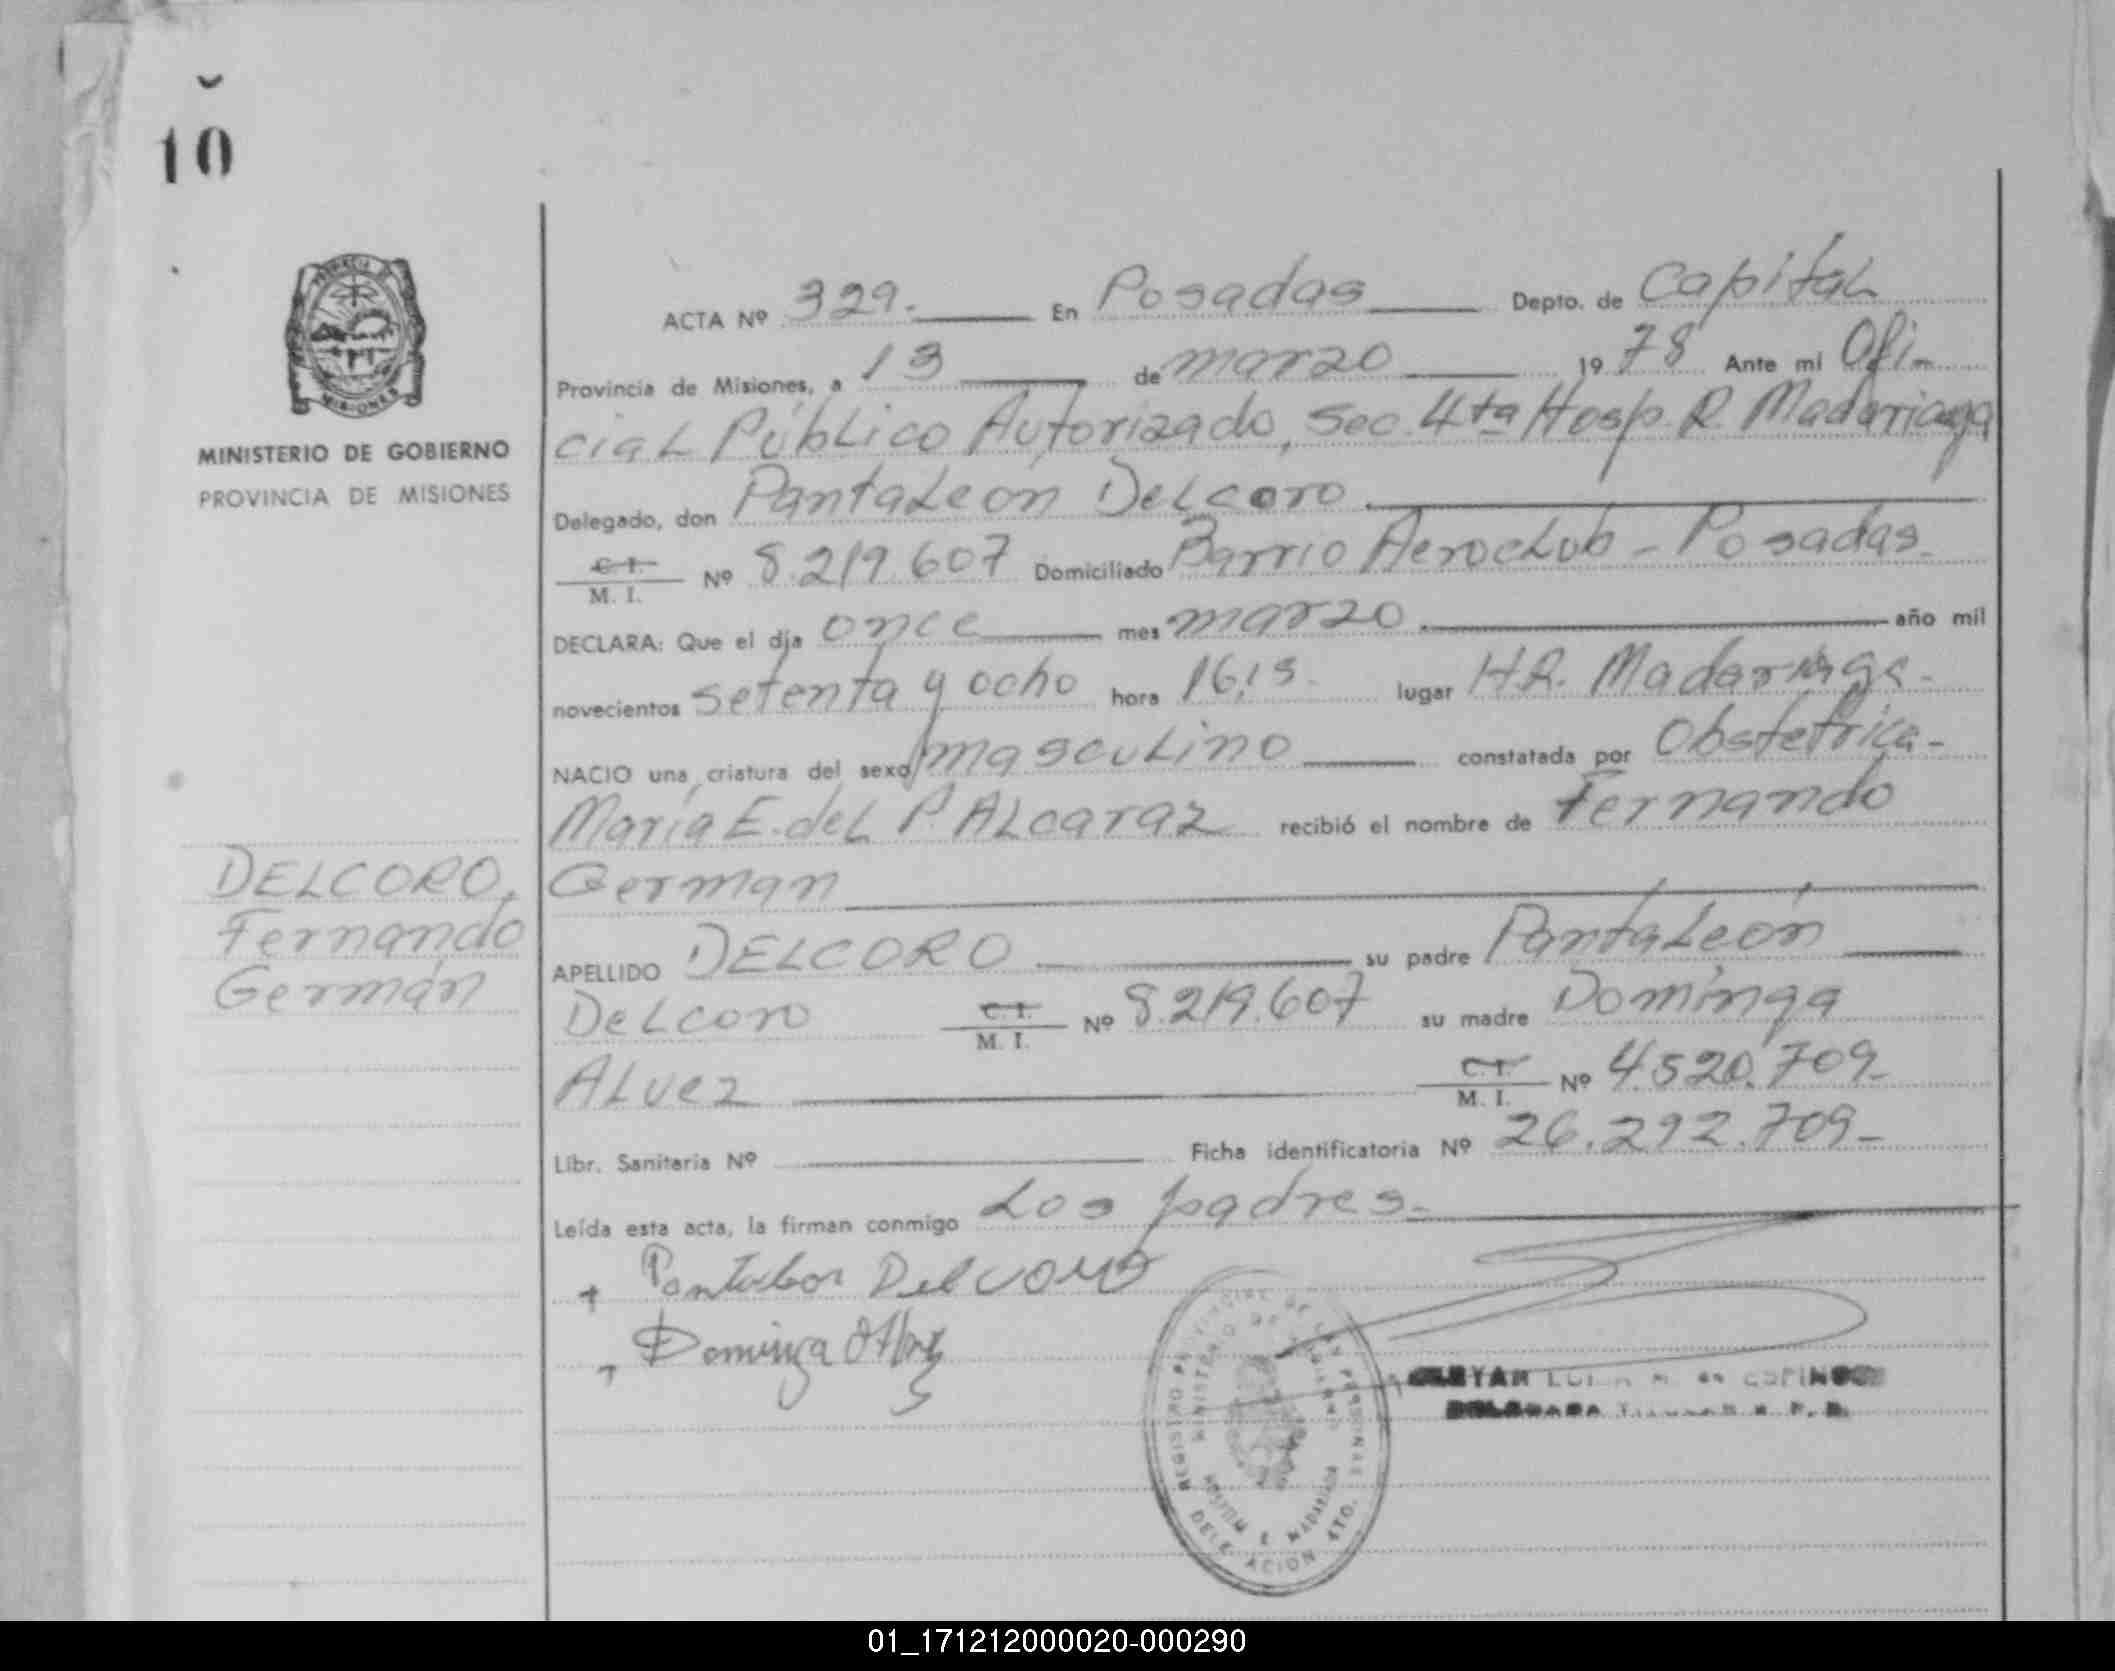 10
PROVINCIA DE
MISIONES
MINISTERIO DE GOBIERNO
PROVINCIA DE MISIONES
DELCORO,
Fernando
Germán
ACTA Nº 329. En Posadas Depto. de Capital
Provincia de Misiones, a 13 de marzo 1978 Ante mi Ofi-
cial Público Autorizado, Sec. 4ta Hosp. R. Madariaga
Delegado, don Pantaleón Delcoro
C. I. M. I. Nº 8.219.607 Domiciliado Barrio Aeroclub - Posadas-
DECLARA: Que el día once mes marzo año mil
novecientos setenta y ocho hora 16,15- lugar H.R. Madariaga-
NACIO una criatura del sexo masculino constatada por Obstetrica-
María E. del P. Alcaraz recibió el nombre de Fernando
German
APELLIDO DELCORO su padre Pantaleón
Delcoro C. I. M. I. Nº 8.219.607 su madre Dominga
Alvez C. I. M. I. Nº 4.520.709-
Libr. Sanitaria Nº Ficha identificatoria Nº 26.292.709-
Leída esta acta, la firman conmigo Los padres-
Pantaleon Delcoro
Dominga Alvez
REGISTRO PROVINCIAL DE LAS PERSONAS
MINISTERIO DE GOBIERNO
HOSPITAL R. MADARIAGA
DELEGACION 4TO.
01_171212000020-000290